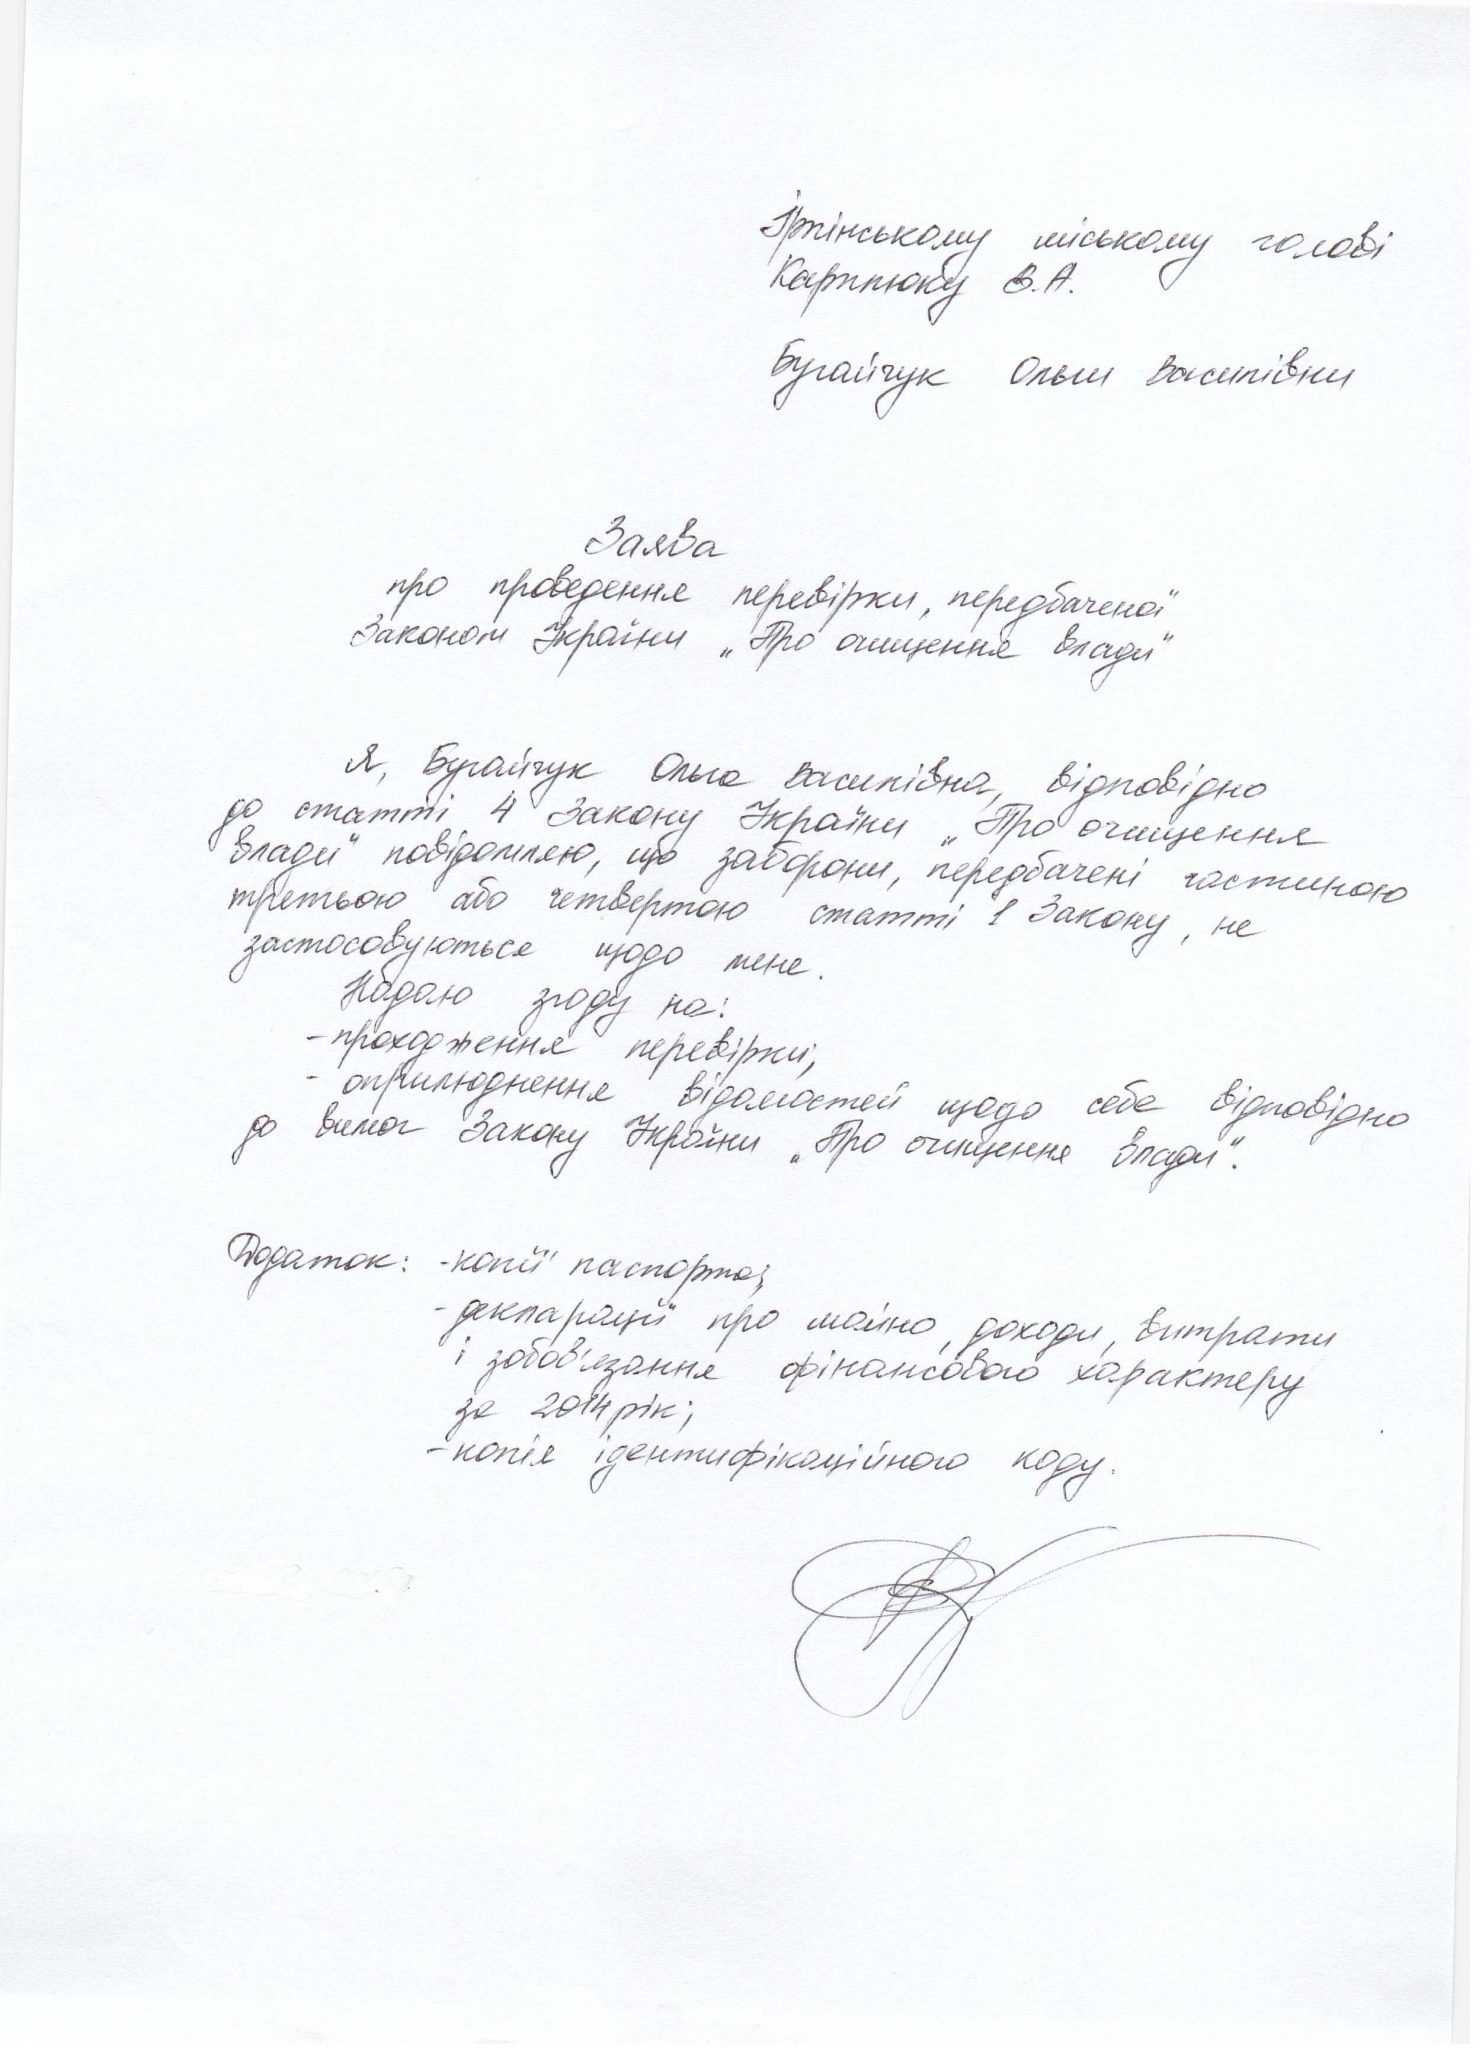 Ірпінському міському голові
Карплюку В.А.
Бугайчук Ольги Василівни
Заява
про проведення перевірки, передбаченої
Законом України „Про очищення влади"
Я, Бугайчук Ольга Василівна, відповідно
до статті 4 Закону України „Про очищення
влади" повідомляю, що заборони, передбачені частиною
третьою або четвертою статті 1 Закону, не
застосовуються щодо мене.
Надаю згоду на:
- проходження перевірки;
- оприлюднення відомостей щодо себе відповідно
до вимог Закону України „Про очищення влади".
Додаток: - копії паспорта;
- декларації про майно, доходи, витрати
і зобов'язання фінансового характеру
за 2014 рік;
- копія ідентифікаційного коду.